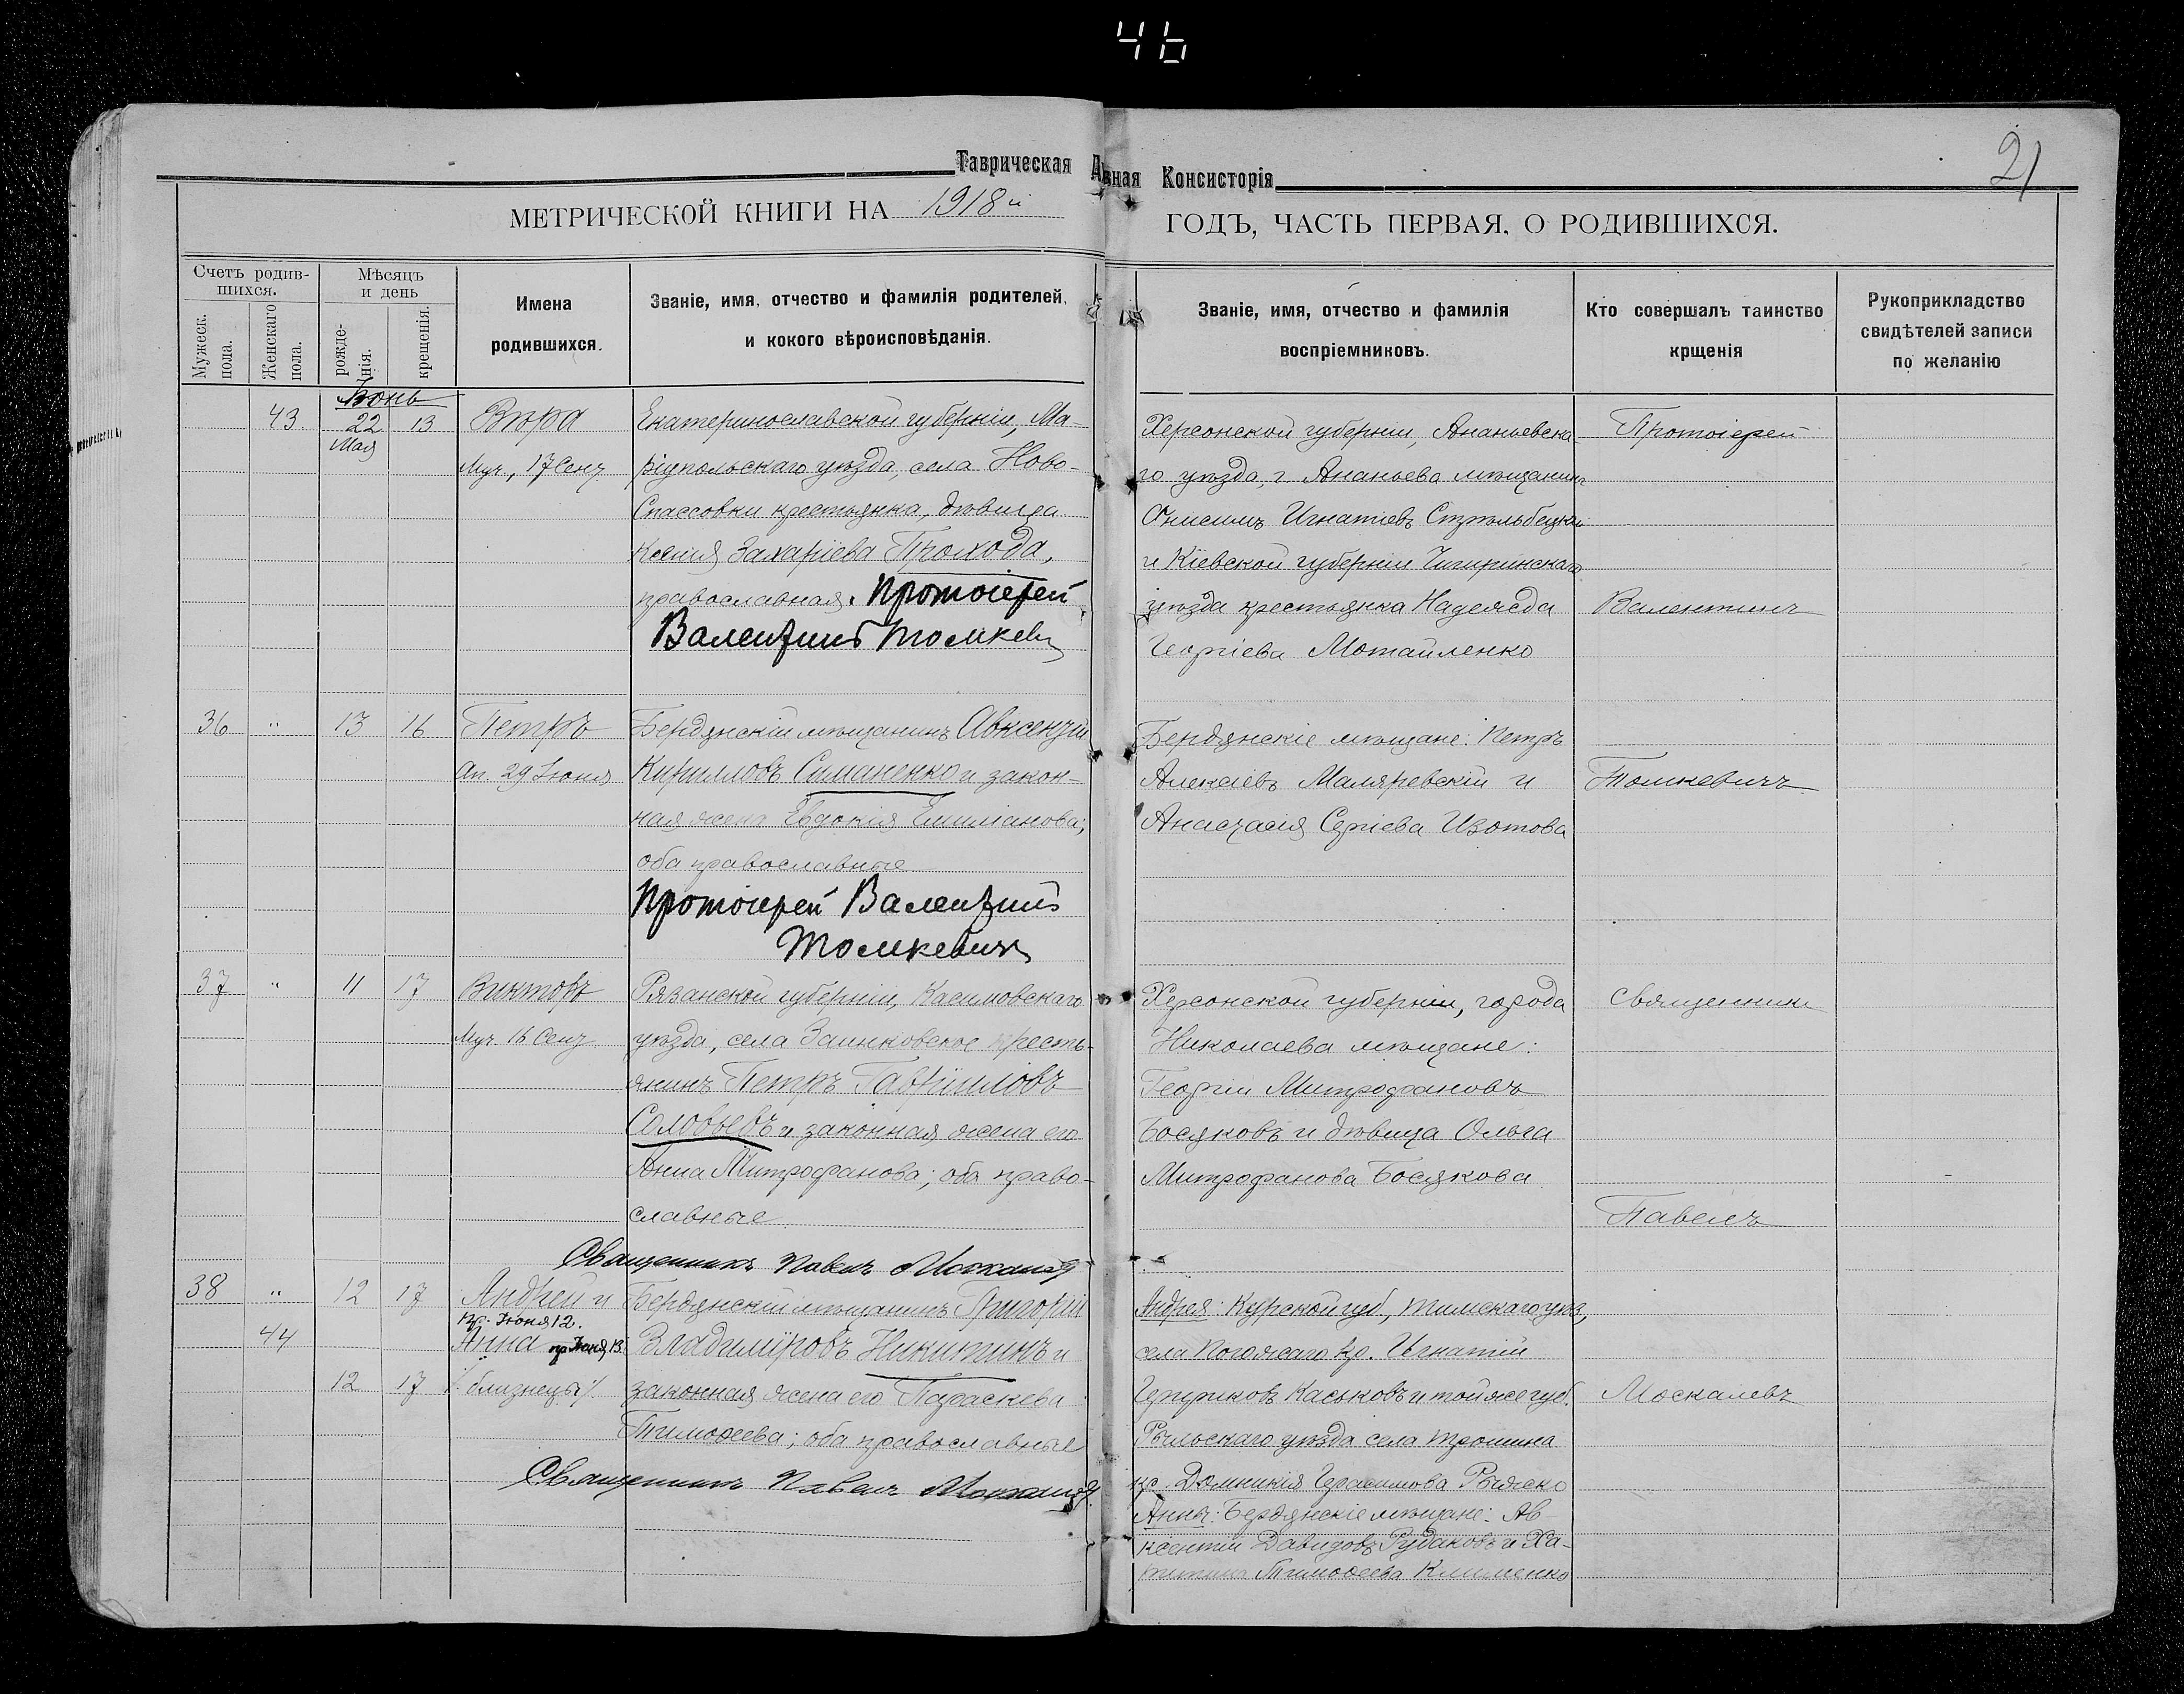 46
21
Таврическая
вная Консисторія
МЕТРИЧЕСКОЙ КНИГИ НА 1918 й
ГОДЪ, ЧАСТЬ ПЕРВАЯ, О РОДИВШИХСЯ.
Счетъ родив-
шихся.
Мужеск.
пола.
Женскаго
пола.
Мѣсяцъ
и день
рожде-
нія.
крещенія.
Имена
родившихся.
Званіе, имя, отчество и фамилія родителей,
и кокого вѣроисповѣданія.
Званіе, имя, отчество и фамилія
воспріемниковъ.
Кто совершалъ таинство
крщенія
Рукоприкладство
свидѣтелей записи
по желанію
Іюнь
43. 22 13
Мая
Вѣра
Муч., 17 Сент.
Екатеринославской губерніи, Ма-
ріупольскаго уѣзда, села Ново-
Спассовки крестьянка, дѣвица
Ксенія Захаріева Прохода,
православная. Протоіерей
Валентинъ Томкевич
Херсонской губерніи, Ананьевска-
го уѣзда, г. Ананьева мѣщанинъ
Онисимъ Игнатіевъ Стрѣльбецкій
и Кіевской губерніи Чигиринскаго
уѣзда крестьянка Надежда
Георгіева Мотайленко
Протоіерей
Валентинъ
Томкевичъ
36 " 13 16
Петръ
Ап. 29 Іюня
Бердянскій мѣщанинъ Авксентій
Кирилловъ Симаненко и закон-
ная жена Евдокія Емиліанова;
оба православные
Протоіерей Валентинъ
Томкевичъ
Бердянскіе мѣщане: Петръ
Алексіевъ Маляревскій и
Анастасія Сергіева Изотова
37 " 11 17
Викторъ
Муч. 16 Сент.
Рязанской губерніи, Касимовскаго
уѣзда, села кресть-
янинъ Петръ Гавріиловъ
Соловьевъ и законная жена его
Анна Митрофанова; оба право-
славные
Священникъ Павелъ Москалев
Херсонской губерніи, города
Николаева мѣщане:
Георгій Митрофановъ
Босяковъ и дѣвица Ольга
Митрофанова Босякова
Священникъ
Павелъ
Москалевъ
38 " 12 17
44
12 17
Андрей и
пр. Іюня 12.
Анна пр. Іюня, 13.
/. близнецы /.
Бердянскій мѣщанинъ Григорій
Владиміровъ Никитинъ и
законная жена его Параскева
Тимоѳеева; оба православные
Священникъ Павелъ Москалев
Андрея: Курской губ., Тимскаго уѣз,
села Погожаго кр. Игнатій
Каськовъ и той же губ.
Рыльскаго уѣзда села
кр. Домникія Герасимова
Анны: Бердянскіе мѣщане: Ав-
ксентій Давидовъ Рудаковъ и Ха-
ритина Тимоѳеева Клименко